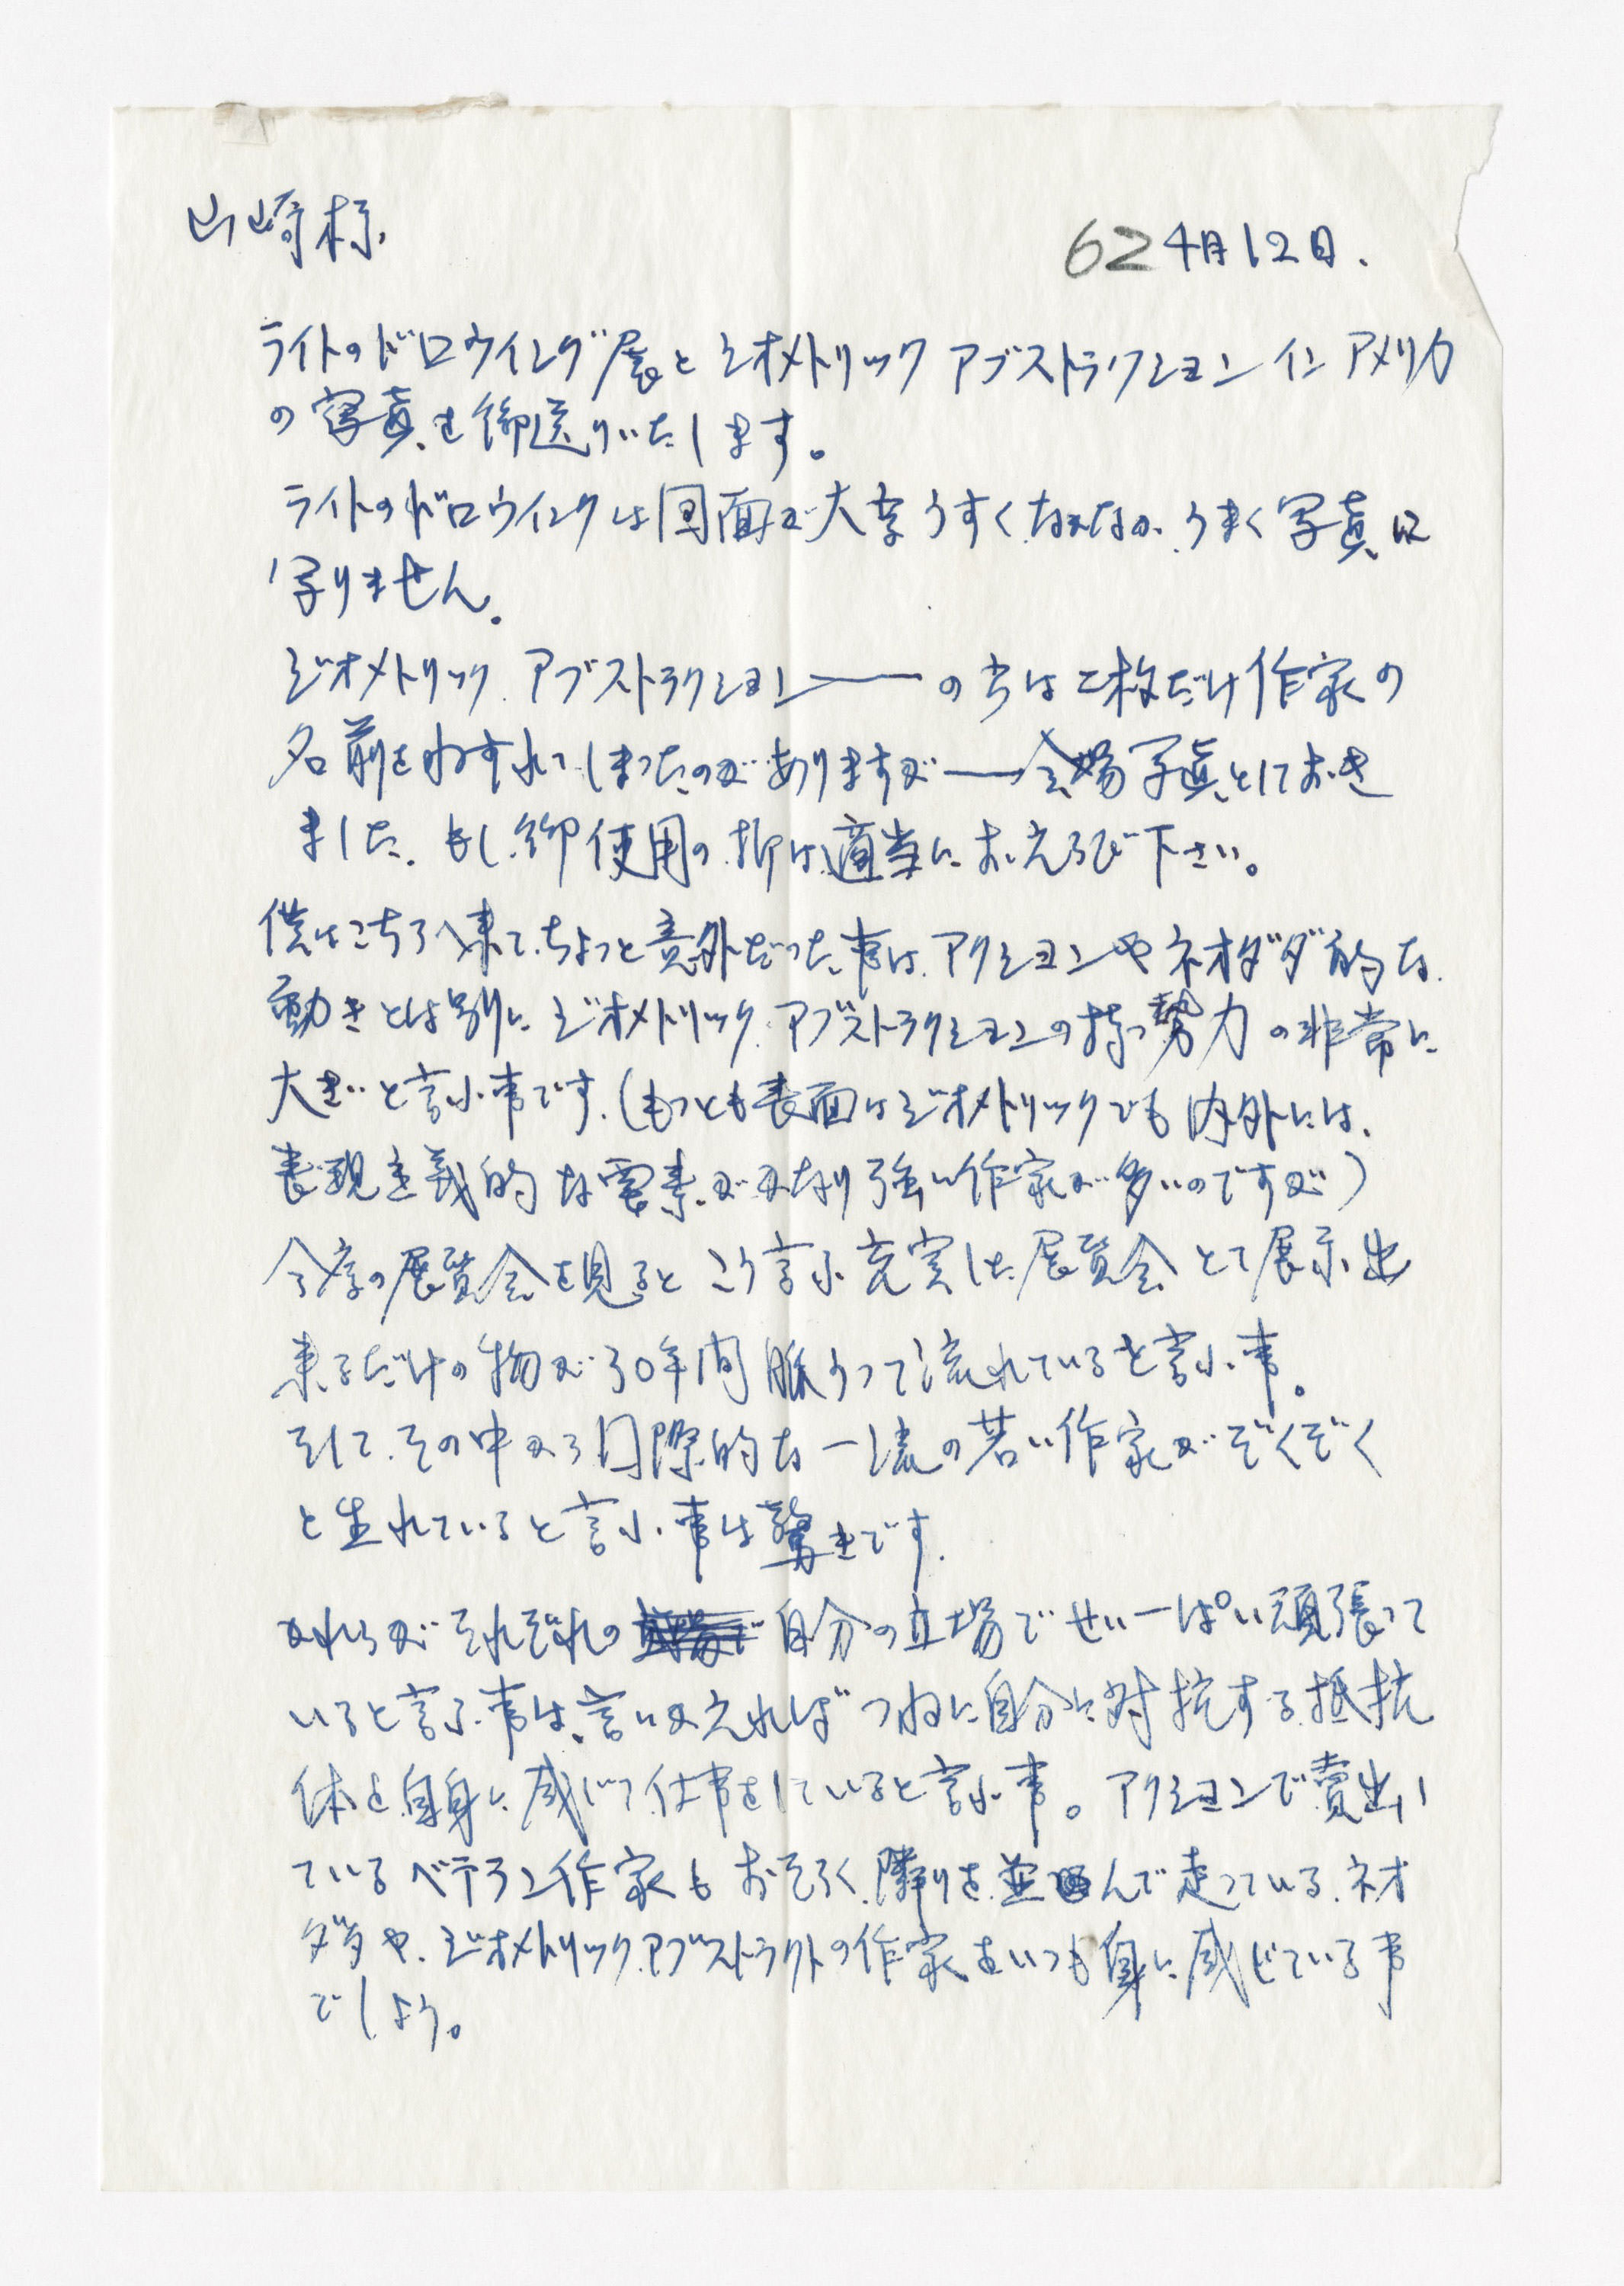 山崎様
62 4月12日.
ライトのドロウイング展とジオメトリック アブストラクション イン アメリカ
の写真を御送りいたします。
ライトのドロウイングは図面が大変うすくなかなか、うまく写真に
写りません。
ジオメトリック アブストラクション――の方は二枚だけ作家の
名前をわすれてしまったのがありますが――会場写真とっておき
ました。もし御使用の折は適当におえらび下さい。
僕はこちらへ来てちょっと意外だった事は、アクションやネオダダ的な
動きとは別に ジオメトリック、アブストラクションの持つ勢力の非常に
大きいと言ふ事です、(もっとも表面はジオメトリックでも内外には、
表現主義的な要素がかなり強い作家が多いのですが)
今度の展覧会を見ると こう言ふ充実した展覧会として展示出
来るだけの物が30年間脈うって流れていると言ふ事。
そして、その中から国際的な一流の若い作家がぞくぞく
と生れていると言ふ事は驚きです.
かれらがそれぞれの 自分の立場でせい一ぱい頑張って
いると言ふ事は、言いかえればつねに自分に対抗する抵抗
体を自身に感じて仕事をしていると言ふ事。アクションで賣出し
ているベテラン作家もおそらく隣りを並んで走っている、ネオ
ダダや、ジオメトリック、アブストラクトの作家をいつも身に感じている事
でしょう。